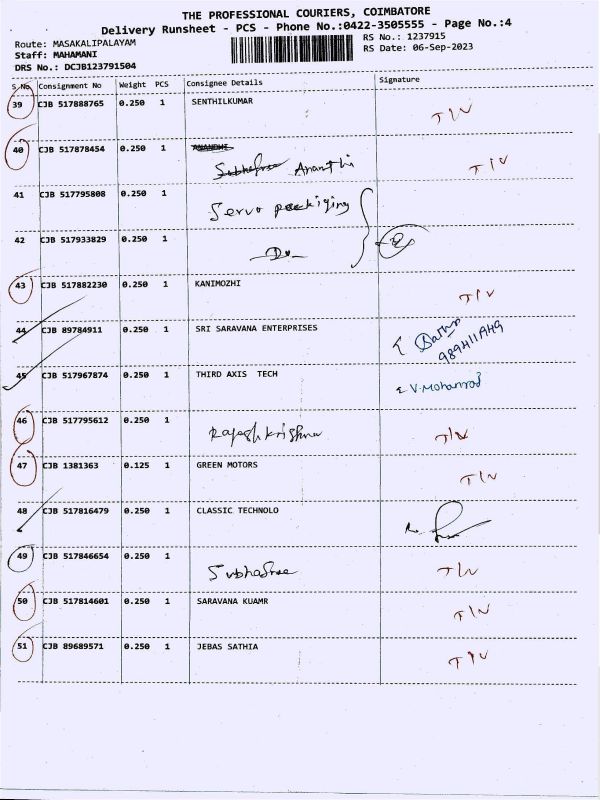 THE PROFESSIONAL COURIERS, COIMBATORE
Delivery Runsheet - PCS - Phone No.:0422-3505555 - Page No.:4
Route: MASAKALIPALAYAM RS No.: 1237915
Staff: MAHAMANI RS Date: 06-Sep-2023
DRS No.: DCJB123791504
S No. Consignment No Weight PCS Consignee Details Signature
39 CJB 517888765 0.250 1 SENTHILKUMAR T/V
40 CJB 517878454 0.250 1 ANANDHI
Subhasree Ananthi T/V
41 CJB 517795808 0.250 1 Servo packiging
42 CJB 517933829 0.250 1 Do
43 CJB 517882230 0.250 1 KANIMOZHI T/V
44 CJB 89784911 0.250 1 SRI SARAVANA ENTERPRISES
45 CJB 517967874 0.250 1 THIRD AXIS TECH V.Mohanraj
46 CJB 517795612 0.250 1 Rajeshkrishna T/V
47 CJB 1381363 0.125 1 GREEN MOTORS T/V
48 CJB 517816479 0.250 1 CLASSIC TECHNOLO
49 CJB 517846654 0.250 1 Subhasree T/V
50 CJB 517814601 0.250 1 SARAVANA KUAMR T/V
51 CJB 89689571 0.250 1 JEBAS SATHIA T/V